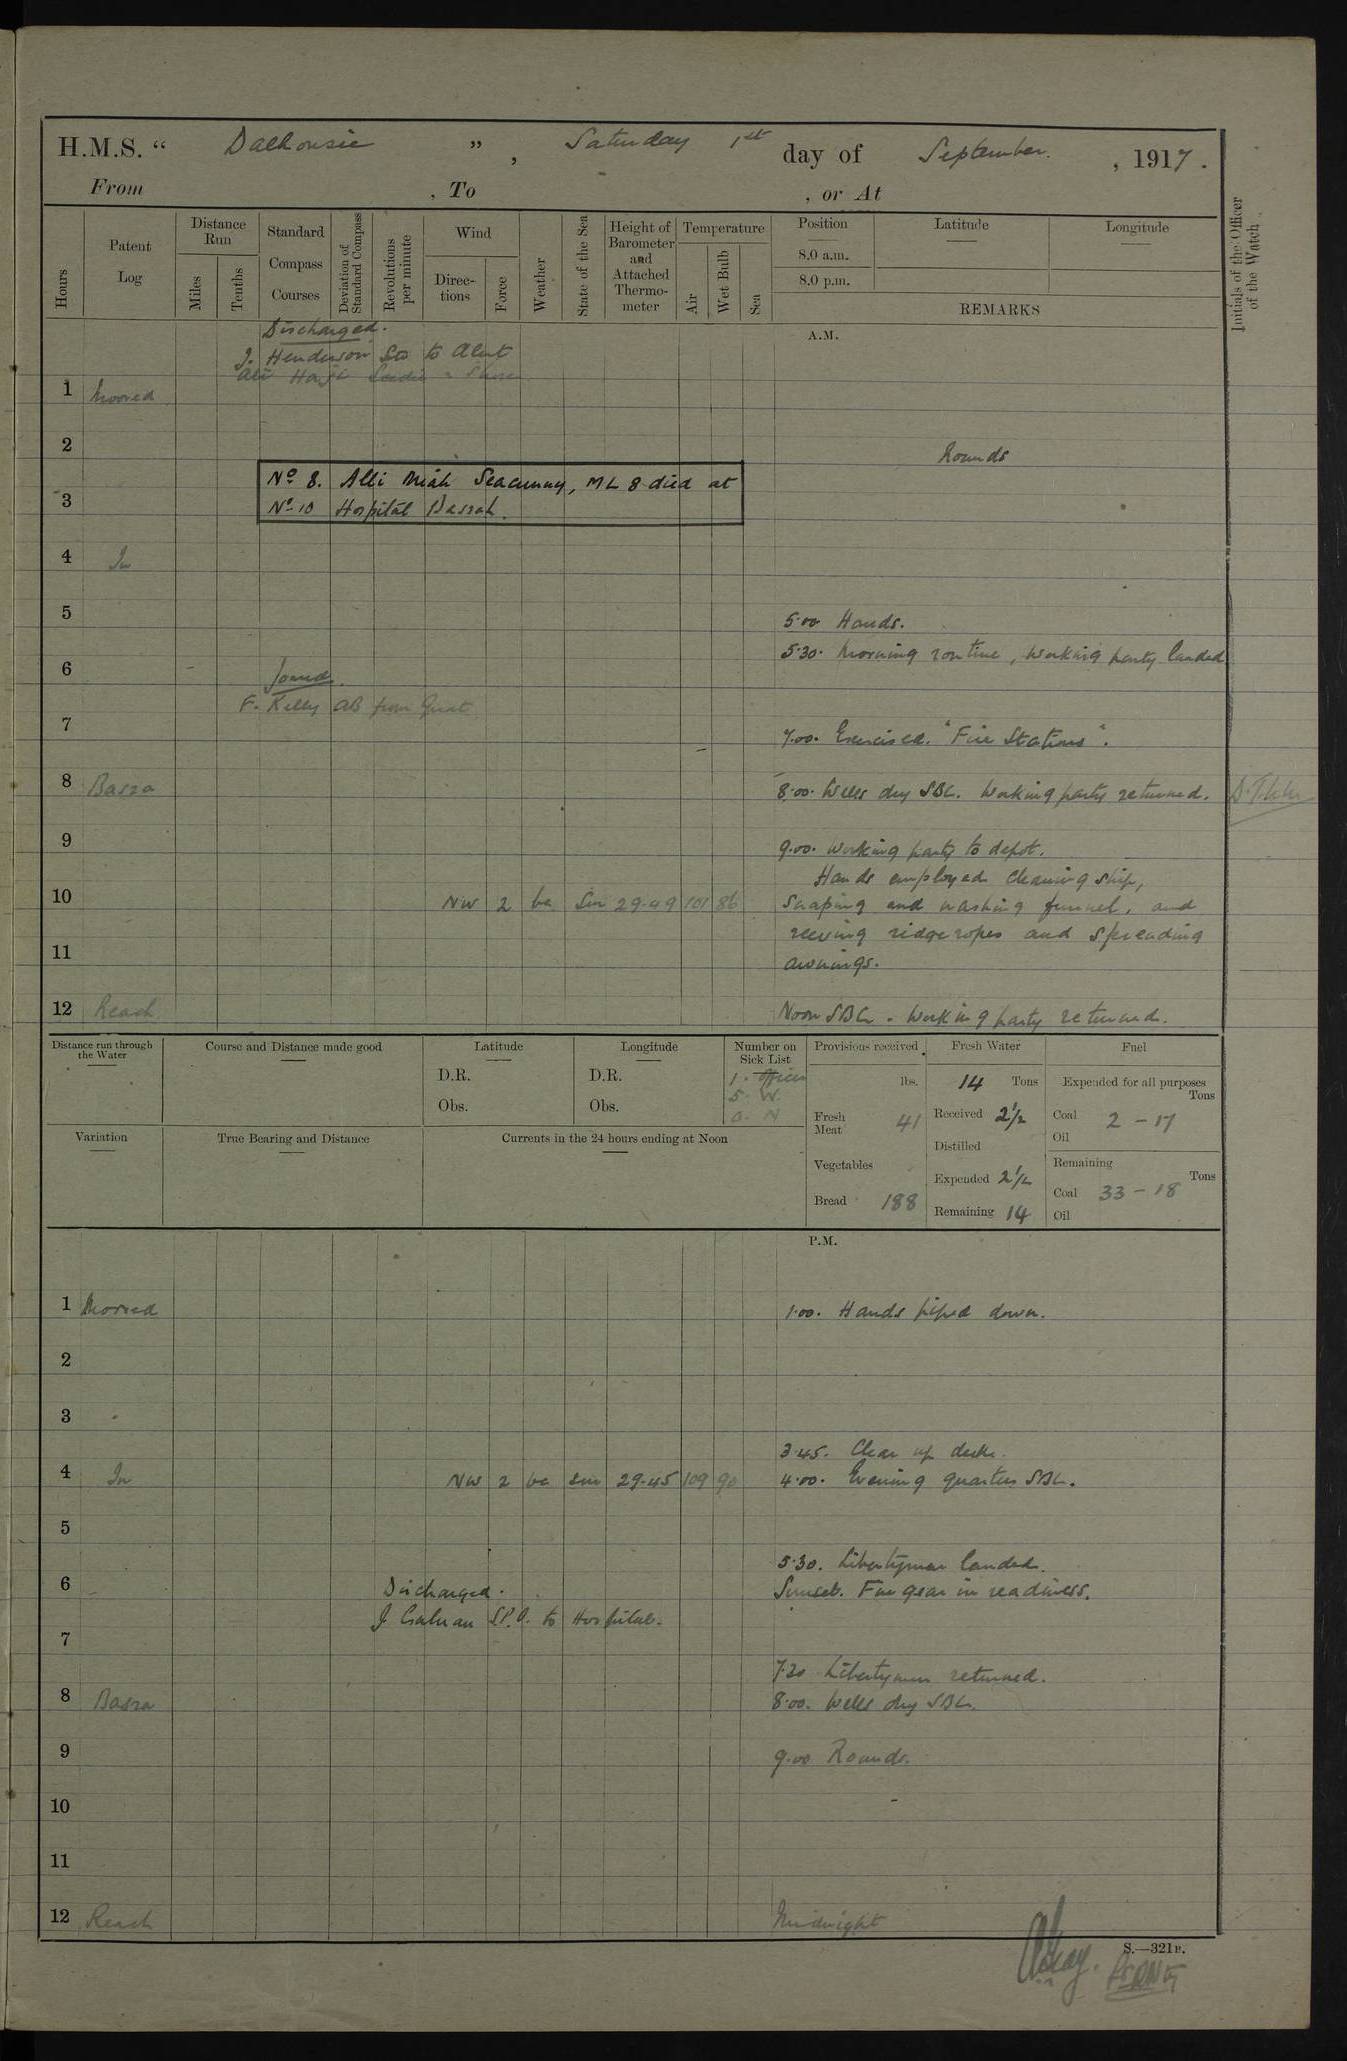 H.M.S. " Dalhousie ", Saturday 1st day of September. , 1917.
From , To , or At
Hours
Patent Log
Distance Run
Miles
Tenths
Standard Compass Courses
Deviation of Standard Compass
Revolutions per minute
Wind
Direc-tions
Force
Weather
State of the Sea
Height of Barometer and Attached Thermo-meter
Temperature
Air
Wet Bulb
Sea
Position
8.0 a.m.
8.0 p.m.
Latitude
Longitude
REMARKS
Initials of the Officer of the Watch
A.M.
Discharged.
J. Henderson Sto to Alert
1 Moored
2 Rounds
No 8. Alli Miah Seacunny, ML 8 died at
3 No 10 Hospital Basrah.
4 In
5 5.00 Hands.
5.30. Morning routine, working party landed
6 Joined.
F. Kelly AB from Gnat
7 7.00. Exercised. "Fire Stations".
8 Basra 8.00. Wells dry SBC. Working party returned.
9 9.00. Working party to depot.
Hands employed cleaning ship,
10 NW 2 bc Sm 29.49 101 86 Scraping and washing funnel, and
reeving ridge ropes and spreading
11 awnings.
12 Reach Noon SBC. Working party returned.
Distance run through the Water
Course and Distance made good
Latitude
D.R.
Obs.
Longitude
D.R.
Obs.
Number on Sick List
1. Officer
5. W.
0. N
Provisions received
lbs.
Fresh Meat 41
Vegetables
Bread 188
Fresh Water
14 Tons
Received 2½
Distilled
Expended 2½
Remaining 14
Fuel
Expended for all purposes
Tons
Coal 2 - 17
Oil
Remaining
Tons
Coal 33 - 18
Oil
Variation
True Bearing and Distance
Currents in the 24 hours ending at Noon
P.M.
1 Moored 1.00. Hands piped down.
2
3
3.45. Clear up decks.
4 In NW 2 bc sm 29.45 109 90 4.00. Evening quarters SBC.
5
5.30. Libertymen landed.
6 Discharged. Sunset. Fire gear in readiness.
J. S.P.O. to Hospital.
7
7.30 Libertymen returned.
8 Basra 8.00. Wells dry SBC.
9 9.00 Rounds.
10
11
12 Reach Midnight
S.—321B.